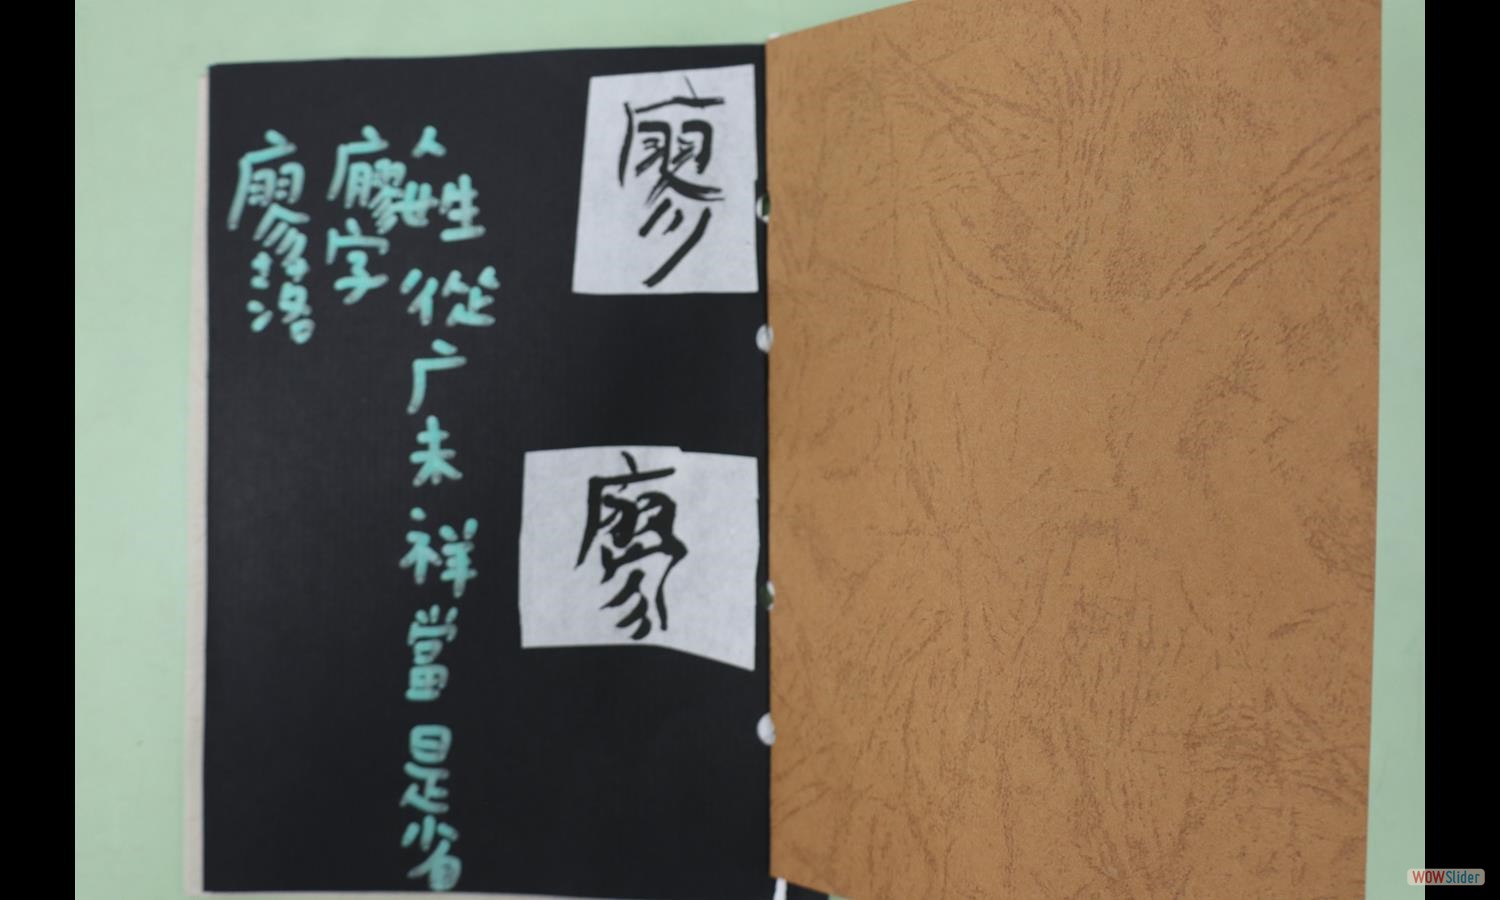 廖
廖
人姓從广未祥當是省
廫字
廖落
WOWSlider